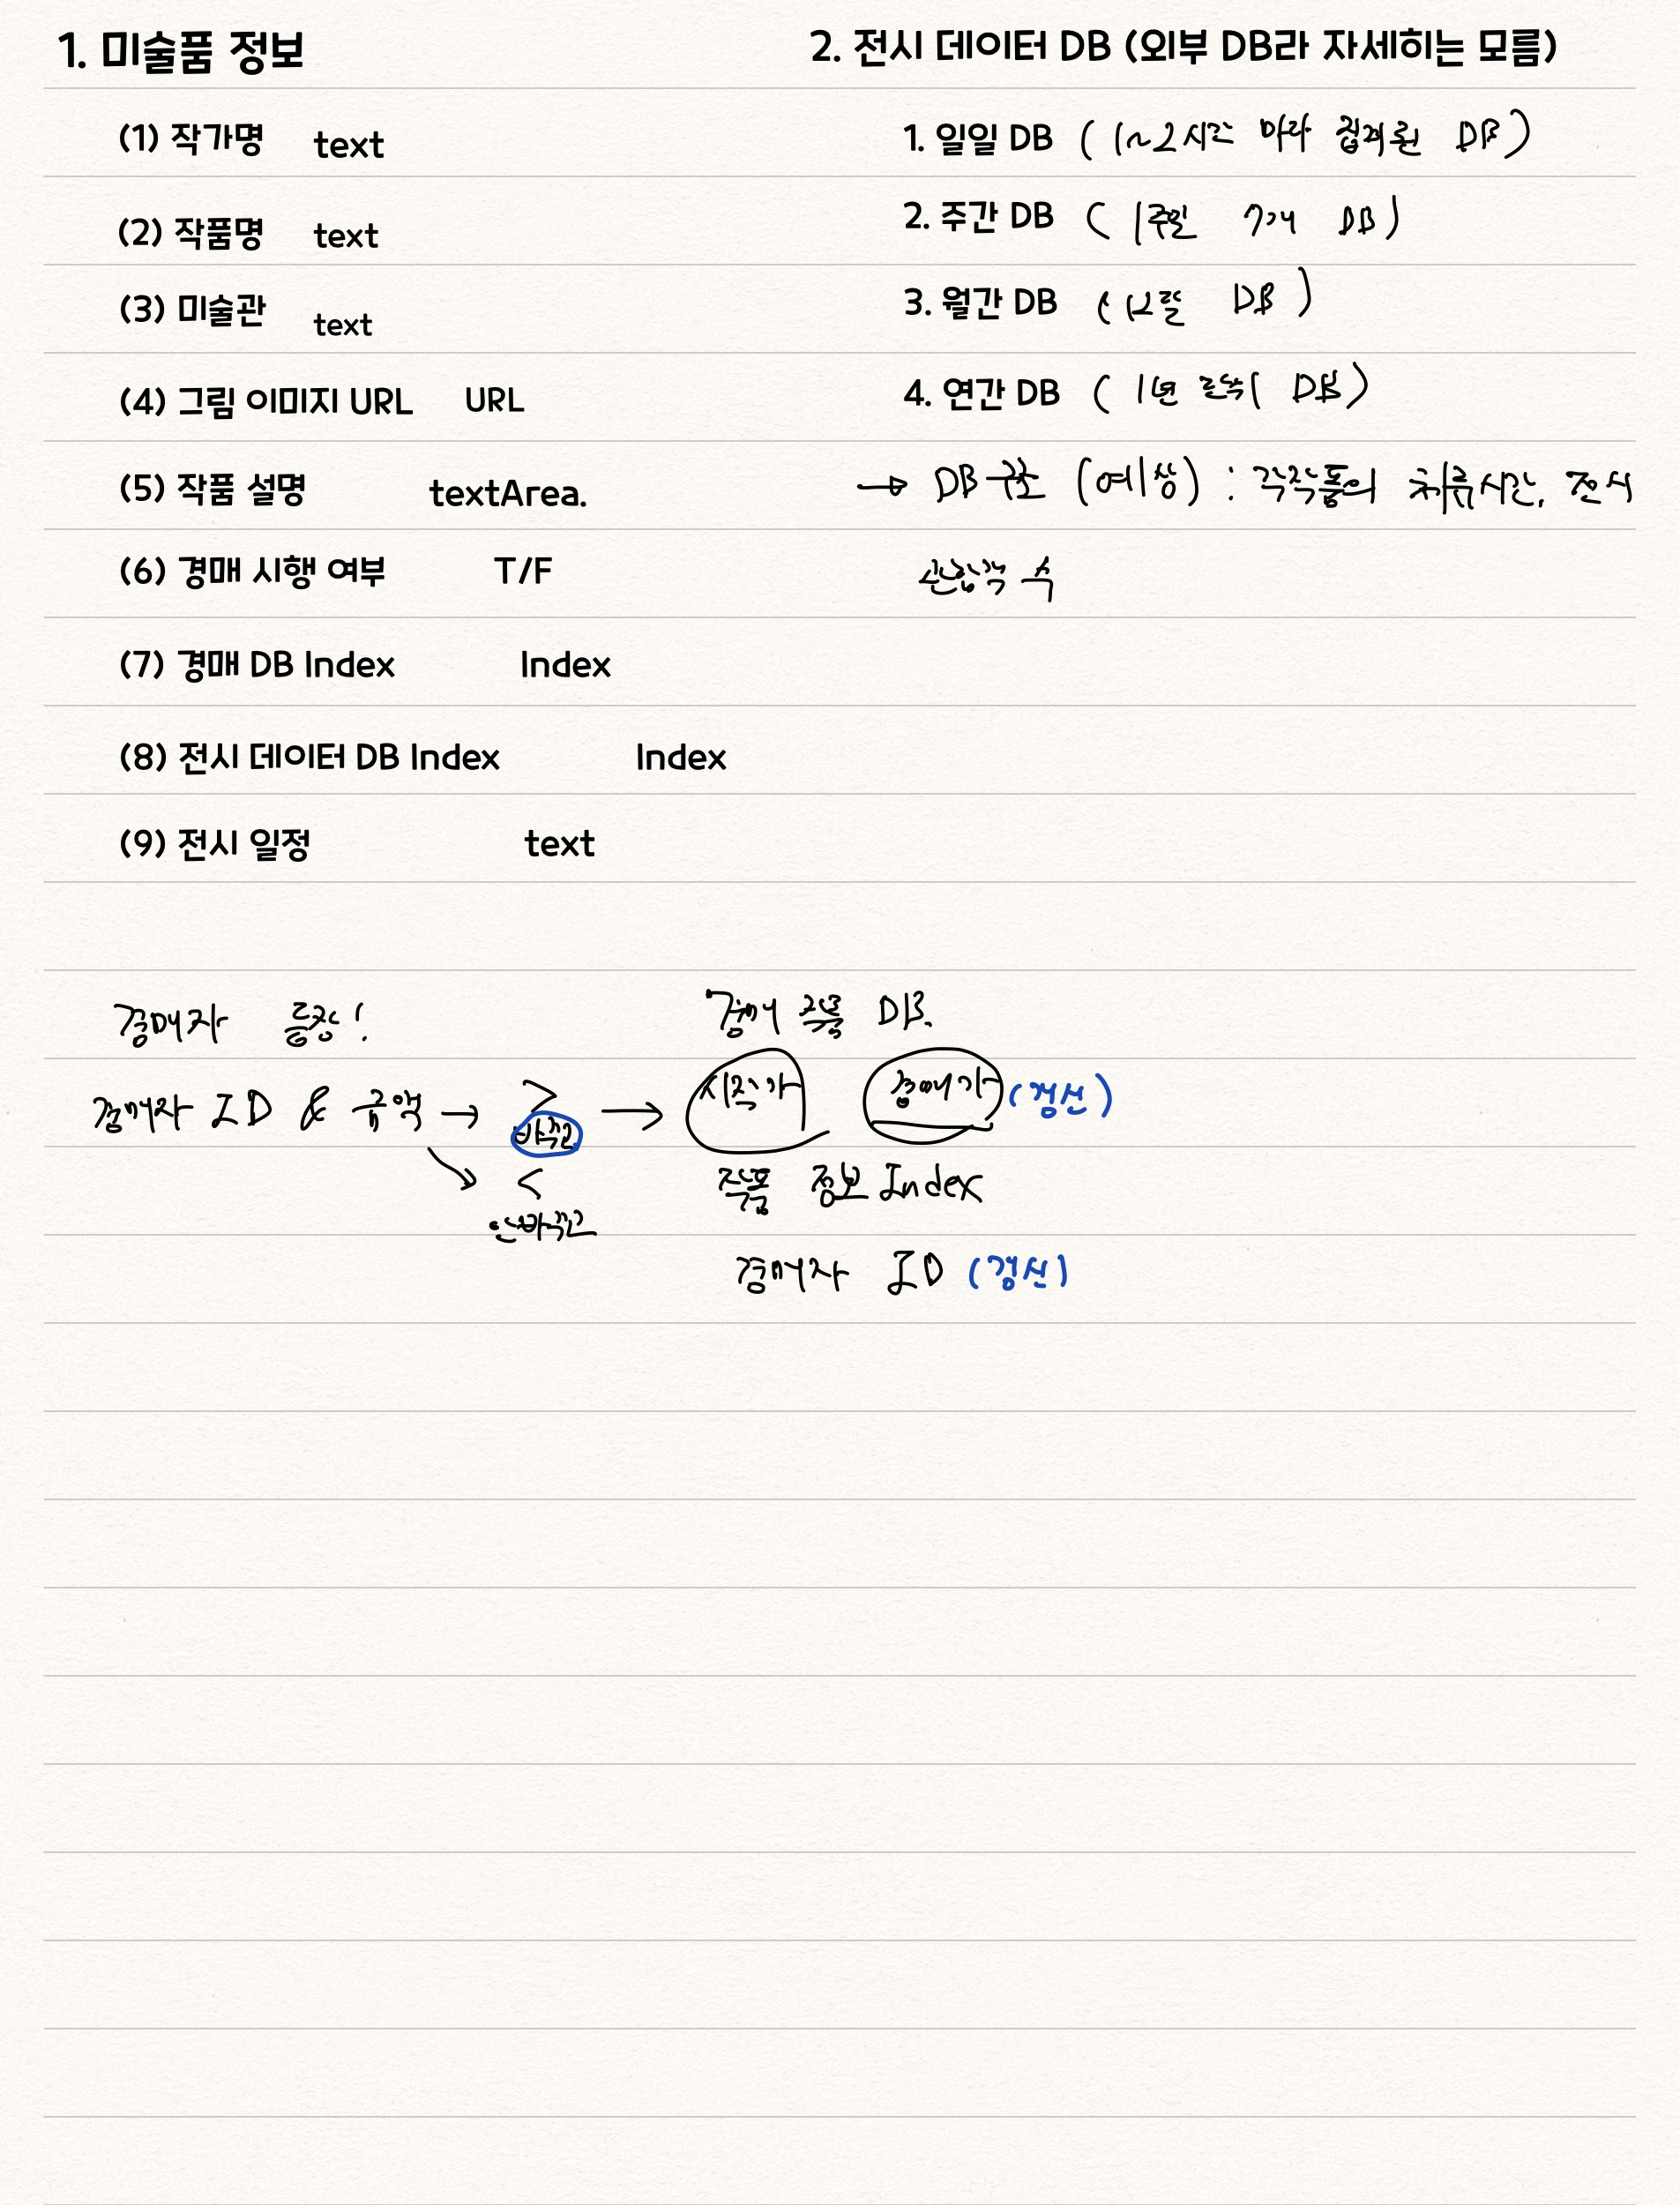 1. 미술품 정보
(1) 작가명 text
(2) 작품명 text
(3) 미술관 text
(4) 그림 이미지 URL URL
(5) 작품 설명 textArea.
(6) 경매 시행 여부 T/F
(7) 경매 DB Index Index
(8) 전시 데이터 DB Index Index
(9) 전시 일정 text
2. 전시 데이터 DB (외부 DB라 자세히는 모름)
1. 일일 DB (1~2시간 마다 집계된 DB)
2. 주간 DB (1주일 7개 DB)
3. 월간 DB (12달 DB)
4. 연간 DB (1년 DB)
→ DB 구조 (예상) : 각 작품의 체류시간, 전시
관람객 수
경매자 등장!
경매자 ID & 금액 → >
바뀐
↘ <
안바뀐
경매 작품 DB.
→ 시작가 경매가 (갱신)
작품 정보 Index
경매자 ID (갱신)